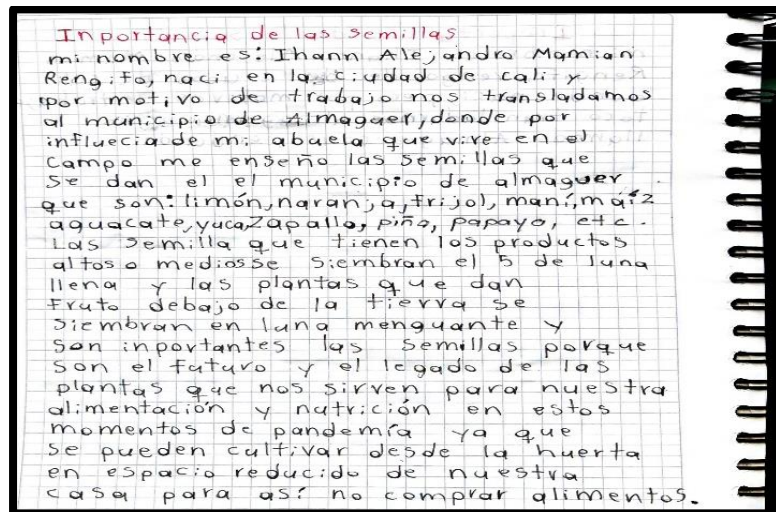 Inportancia de las semillas
mi nombre es: Ihann Alejandro Mamian
Rengifo, naci en la ciudad de cali y
por motivo de trabajo nos transladamos
al municipio de Almaguer, donde por
influecia de mi abuela que vive en el
campo me enseño las semillas que
se dan el el municipio de almaguer
que son: limón, naranja, frijol, maní, maíz
aguacate, yuca, zapallo, piña, papayo, etc.
Las semilla que tienen los productos
altos o medios se siembran el 5 de luna
llena y las plantas que dan
fruto debajo de la tierra se
siembran en luna menguante y
son inportantes las semillas porque
son el futuro y el legado de las
plantas que nos sirven para nuestra
alimentación y nutrición en estos
momentos de pandemía ya que
se pueden cultivar desde la huerta
en espacio reducido de nuestra
casa para así no comprar alimentos.